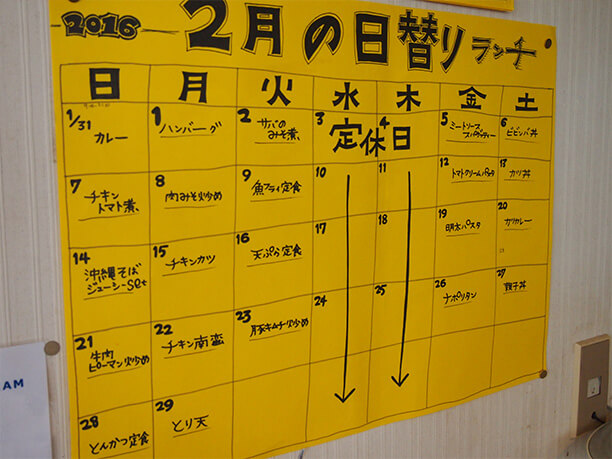 2016 2月の日替りランチ
日 月 火 水 木 金 土
1/31 カレー
1 ハンバーグ
2 サバの
みそ煮
3 4 定休日
5 ミートソース
スパゲッティー
6 ビビンバ丼
7 チキン
トマト煮
8 肉みそ炒め
9 魚フライ定食
10
11
12 トマトクリームパスタ
13 カツ丼
14 沖縄そば
ジューシーset
15 チキンカツ
16 天ぷら定食
17
18
19 明太パスタ
20 カツカレー
21 牛肉
ピーマン炒め
22 チキン南蛮
23 豚キムチ炒め
24
25
26 ナポリタン
27 親子丼
28 とんかつ定食
29 とり天
AM